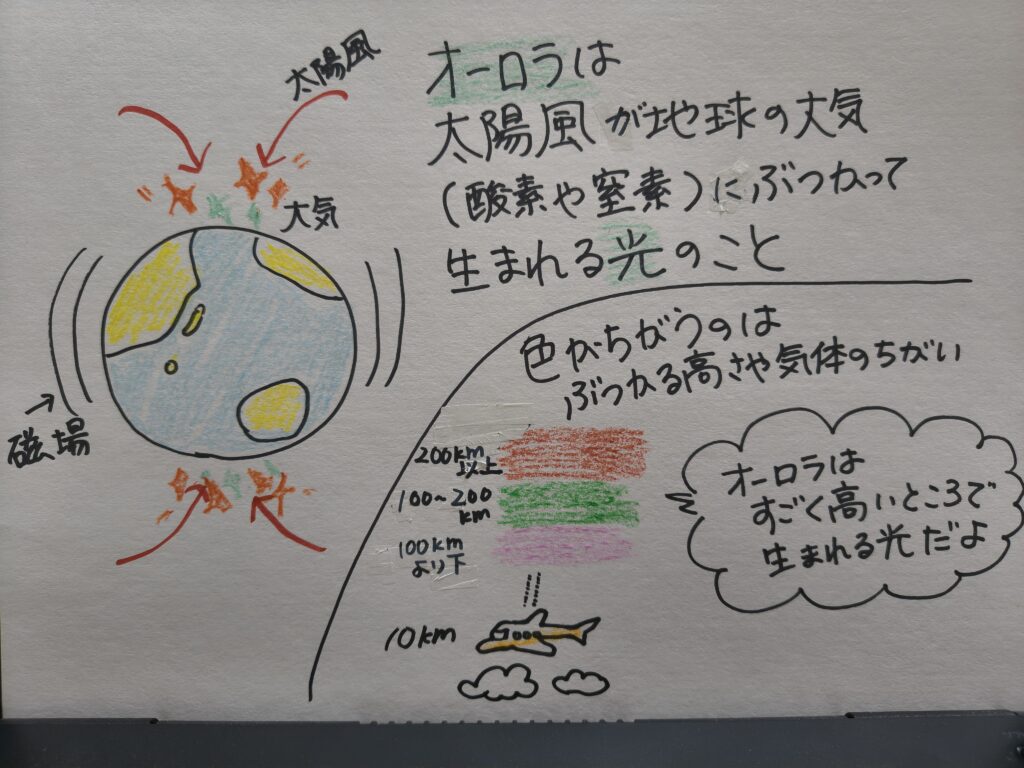 太陽風
大気
磁場
オーロラは
太陽風が地球の大気
(酸素や窒素)にぶつかって
生まれる光のこと
色がちがうのは
ぶつかる高さや気体のちがい
200km
以上
100~200
km
100km
より下
10km
オーロラは
すごく高いところで
生まれる光だよ